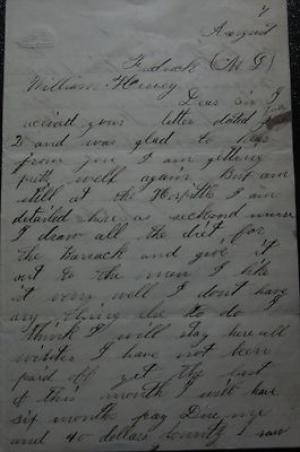 August
Fredrick (M D)
William Hervey
Dear Sir I
received your letter dated
2 and was glad to hear
from you I am getting
pretty well again But am
still at the Hospitle I am
detailed here as seckond nurse
I draw all the diet for
the Barrack and give it
out to the men I like
it very well I dont have
any thing else to do I
think I will stay here all
winter I have not been
paid off yet the last
of this month I will have
six months pay Due me
and 40 dollars bounty I